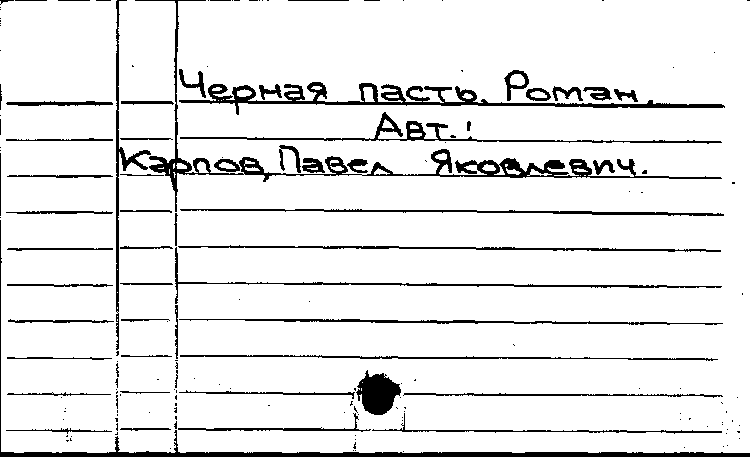 Черная пасть. Роман.
Авт.:
Карпов, Павел Яковлевич.